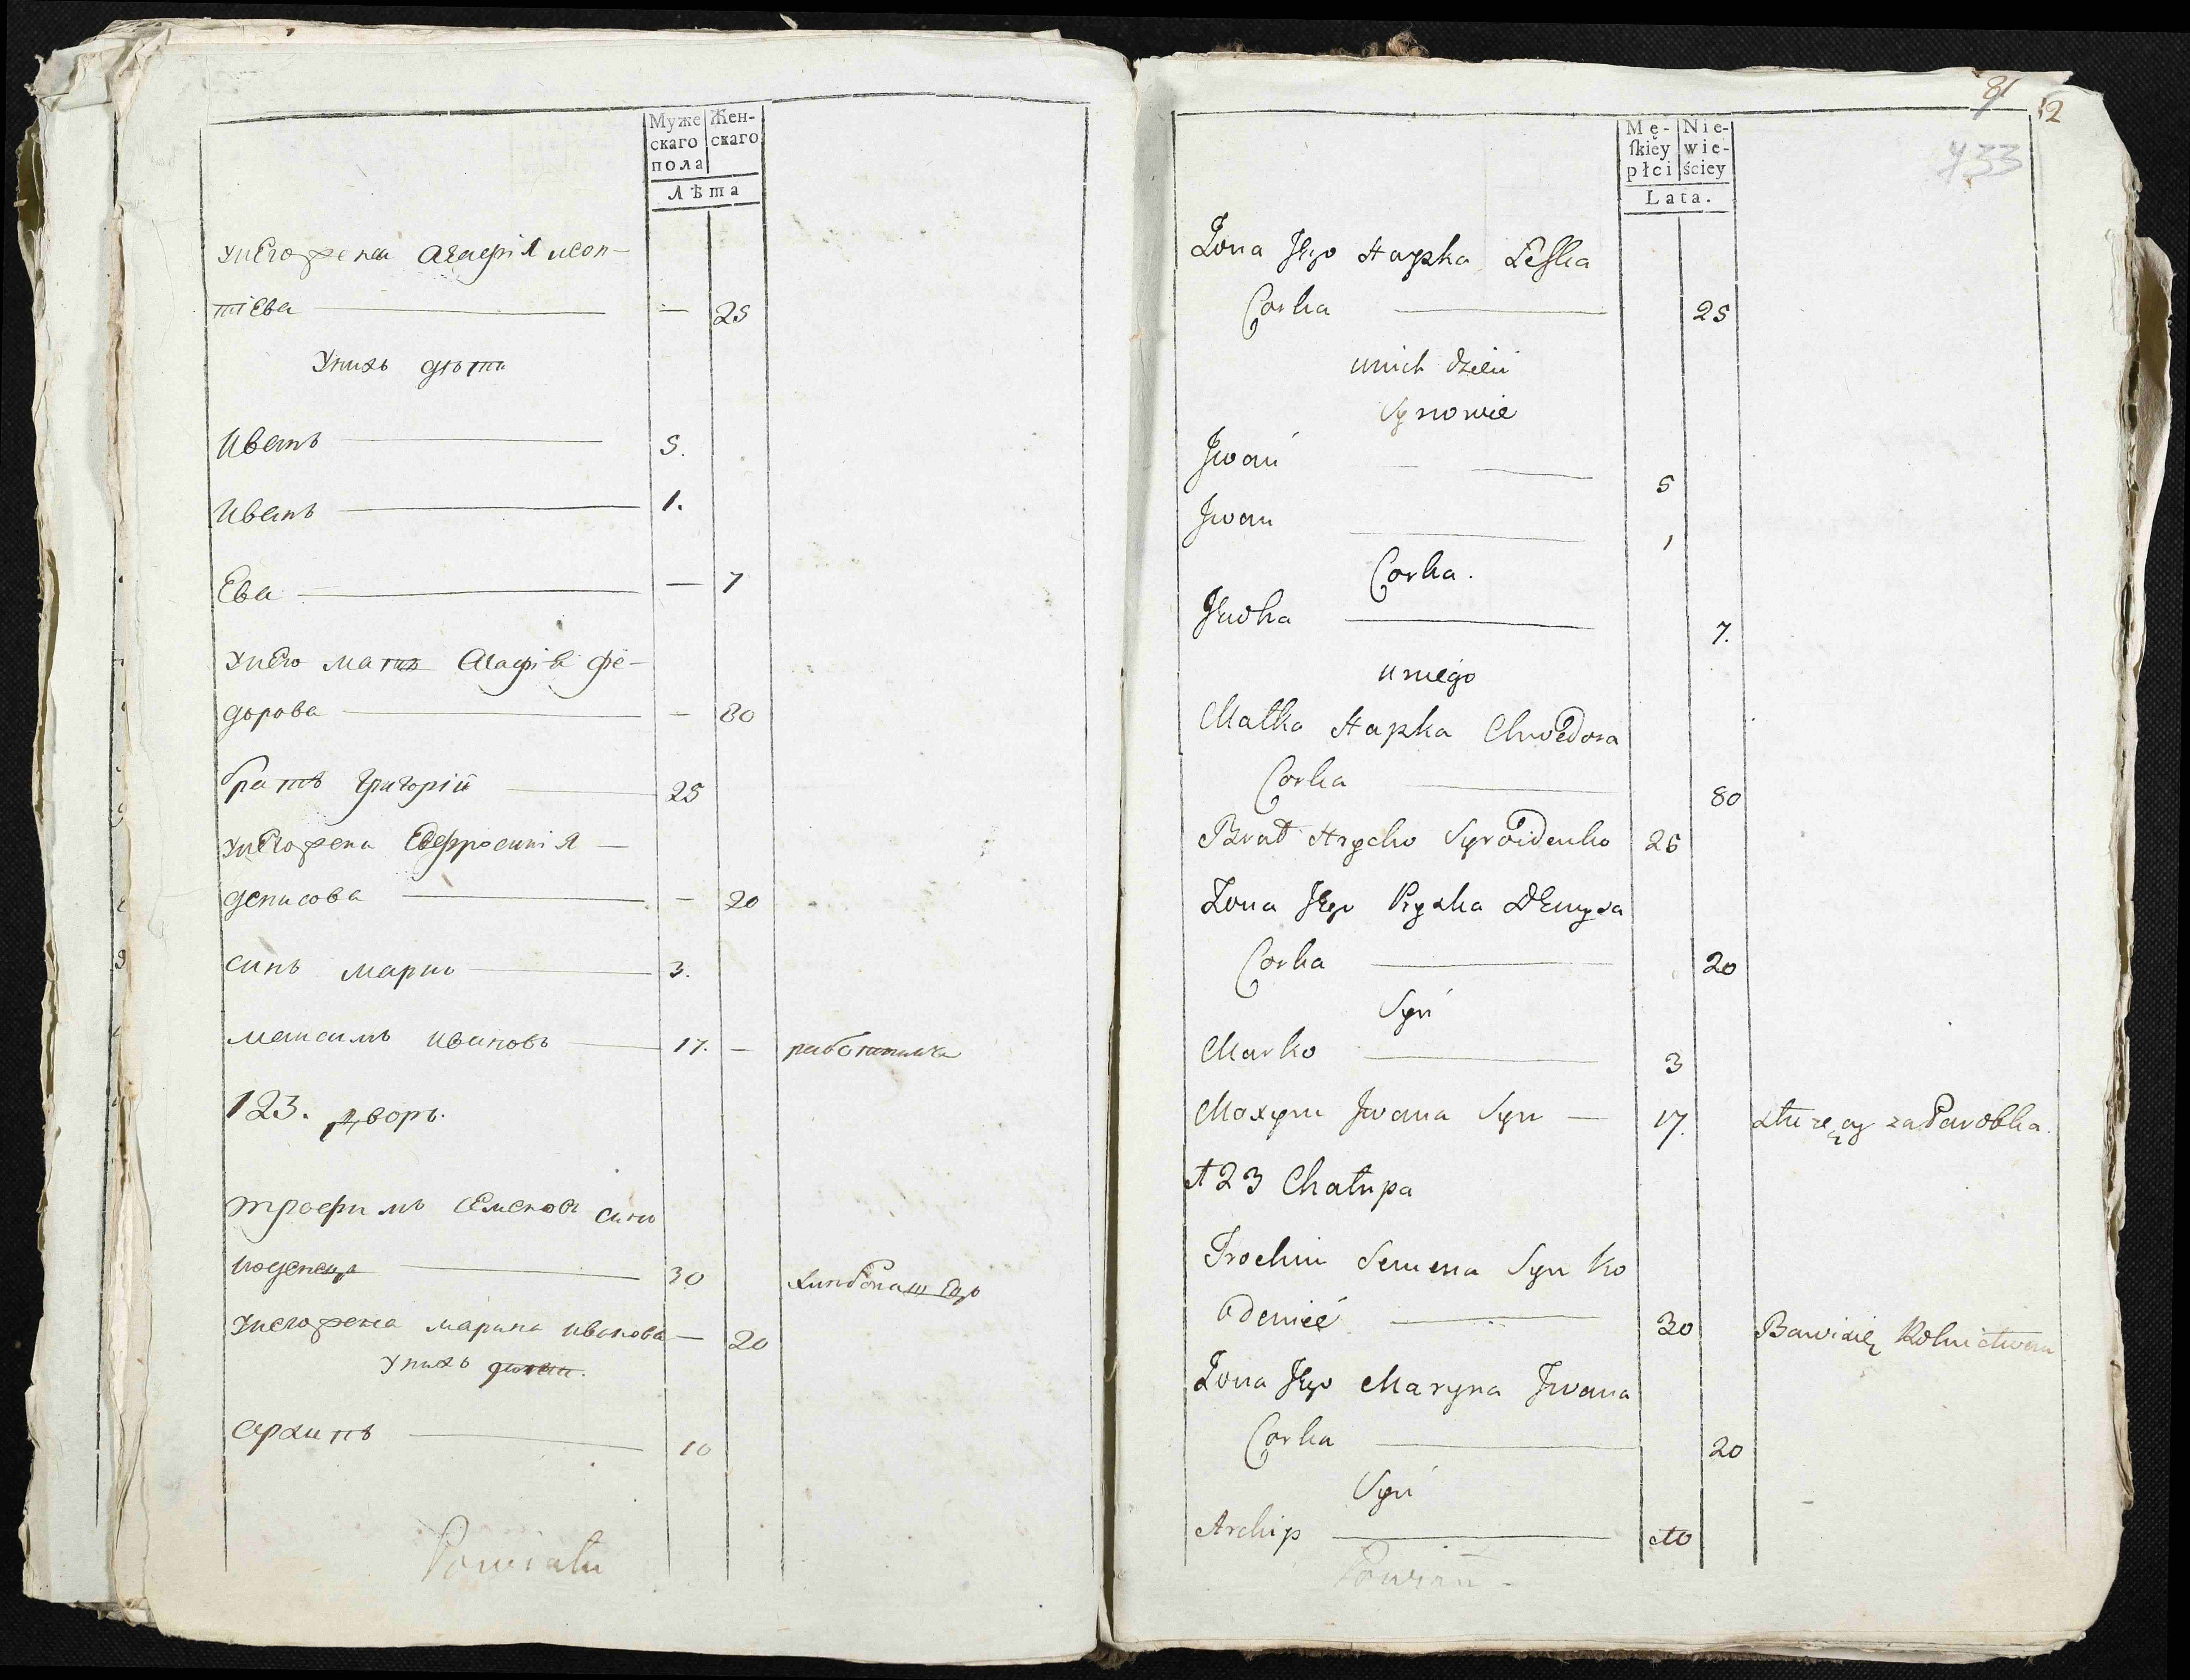 Муже
скаго
пола
Жен-
скаго
Лѣта
унего жена Агафія леон-
тіева — — 25
Унихъ дѣти
Иванъ — 5.
Иванъ — 1.
Ева — — 7
унего мать Агафія фе-
дорова — — 80
братъ григорій — 25
унего жена Евфросинія —
денисова — — 20
синъ марко — 3.
максимъ ивановъ — 17. —
123. дворъ.
трофимъ семеновъ синъ
коденецъ — 30
унего жена марина иванова — 20
унихъ дѣти.
архипъ — 10
Powiatu
81
12
733
Mę-
ſkiey
płci
Nie-
wie-
ściey
Lata.
Żona Jego Hapka Leſka
Corka — 25
unich dzieci
Synowie
Jwań — 5
Jwan — 1
Corka.
Jewka — 7.
uniego
Matka Hapka Chwedora
Corka — 80
Brat Hrycko Syroidenko 26
Żona Jego Pryska Demysa
Corka — 20
Syń
Marko — 3
Maxym Jwana Syn — 17. służący za Parobka.
123 Chałupa
Trochim Semena Syn Ko
deniec — 30 Bawi się Rolnictwem
Żona Jego Maryna Jwana
Corka — 20
Syń
Archip — 10